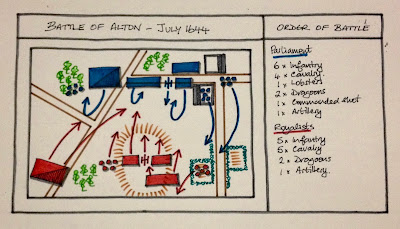 BATTLE OF ALTON - JULY 1644
ORDER OF BATTLE
Parliament
6 x Infantry
4 x Cavalry.
1 x Lobsters
2 x Dragoons
1 x Commanded Shot
1 x Artillery
Royalists.
5 x Infantry
5 x Cavalry.
2 x Dragoons
1 x Artillery.